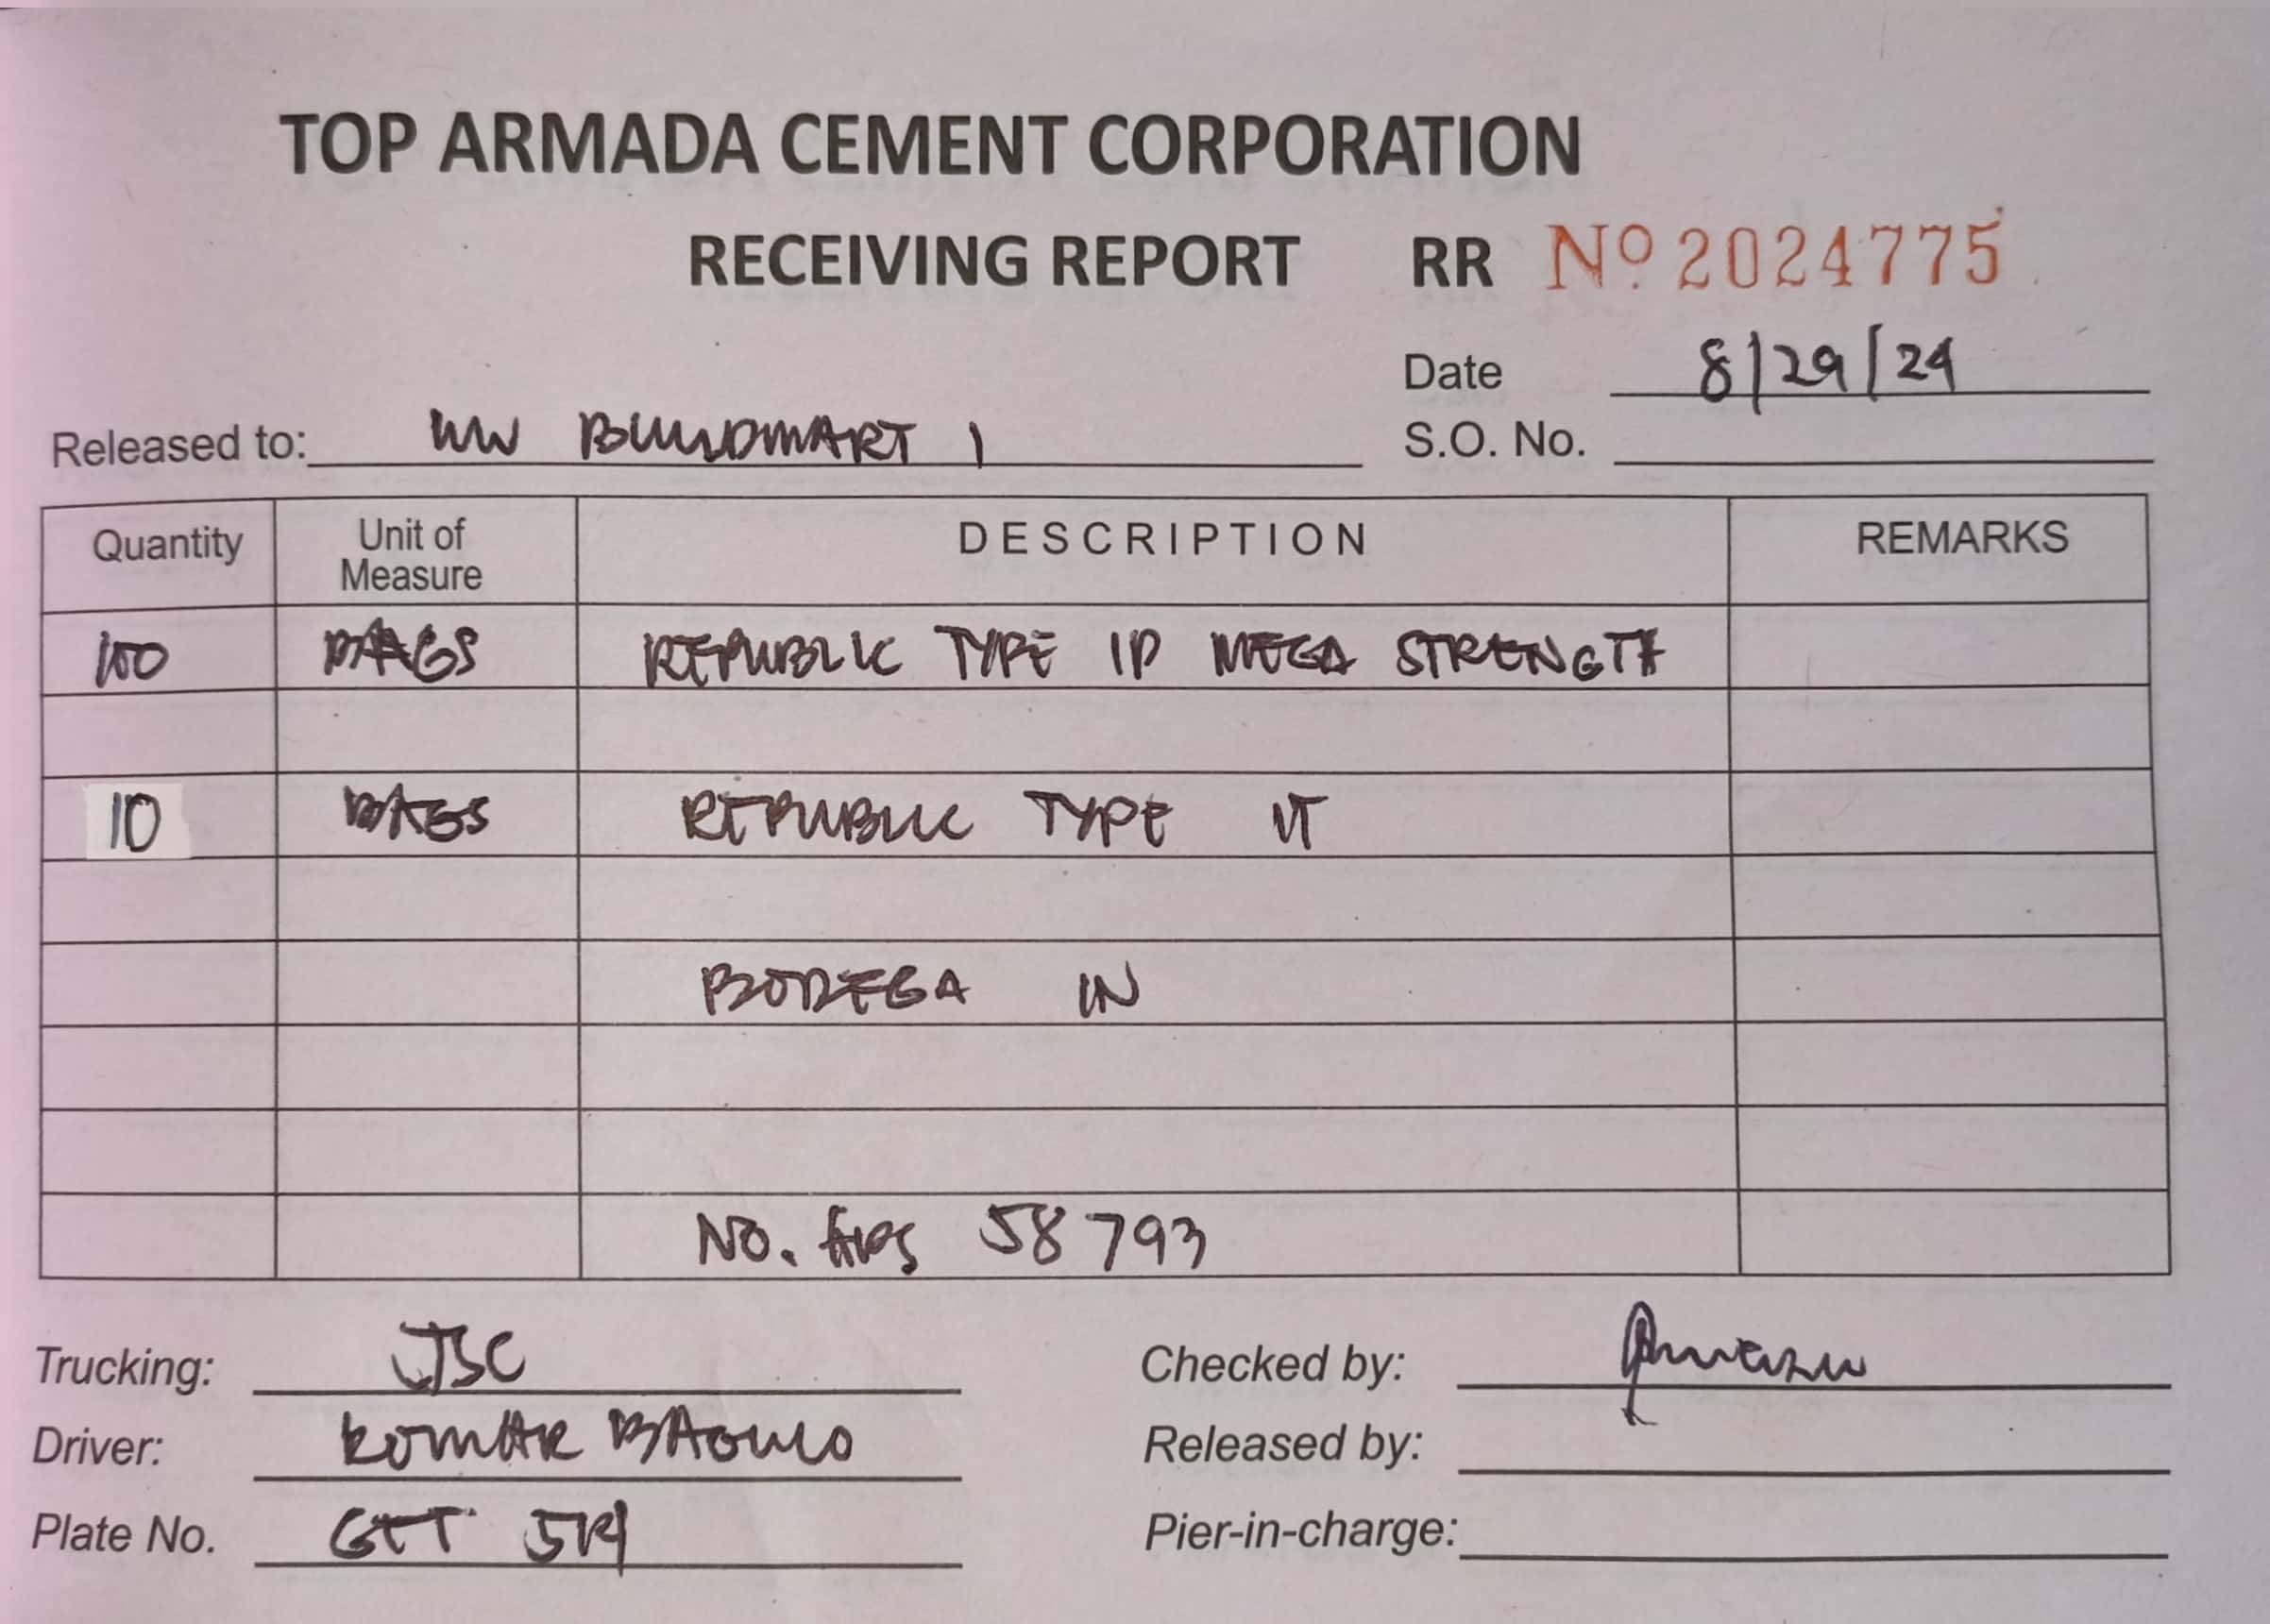 TOP ARMADA CEMENT CORPORATION
RECEIVING REPORT RR Nº 2024775
Date 8/29/24
Released to: WW BUILDMART 1
S.O. No.
Quantity Unit of Measure DESCRIPTION REMARKS
100 BAGS REPUBLIC TYPE 1P MEGA STRENGTH
10 BAGS REPUBLIC TYPE 1T
BODEGA IN
NO. 58793
Trucking: JSC
Checked by:
Driver:
Released by:
Plate No.
Pier-in-charge: